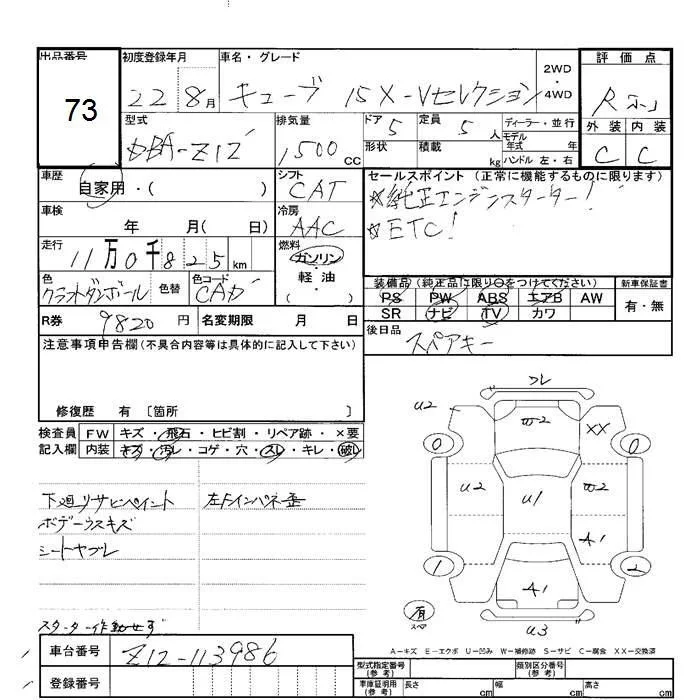 出品番号
73
初度登録年月
22年 8月
車名・グレード
キューブ 15X-Vセレクション
2WD
・
4WD
評価点
R
外装 内装
C C
型式
DBA-Z12
排気量
1500cc
ドア 5
定員 5人
形状
積載 kg
ディーラー・並行
モデル
年式 年
ハンドル 左・右
車歴
自家用・( )
シフト
CAT
セールスポイント (正常に機能するものに限ります)
☆純正エンジンスターター!
☆ETC!
車検
年 月( 日)
冷房
AAC
走行
11万0千825km
燃料
ガソリン
・
軽油
( )
色
クラフトダンボール
色替
色コード
CAD
装備品(純正品に限り○をつけてください)
新車保証書
PS PW ABS エアB AW
SR ナビ TV カワ
有・無
R券 9820円
名変期限 月 日
後日品
スペアキー
注意事項申告欄(不具合内容等は具体的に記入して下さい)
修復歴 有 〔箇所 〕
検査員
記入欄
FW キズ・飛石・ヒビ割・リペア跡・×要
内装 キズ・汚レ・コゲ・穴・スレ・キレ・破レ
下廻りサビペイント
ボデーウスキズ
シートヤブレ
スターター作動せず
左Fインパネ歪
コレ
U2
W2
XX
0
0
U2
U1
W2
A1
1
2
A1
有
スペア
U3
A-キズ E-エクボ U-凹み W-補修跡 S-サビ C-腐食 XX-交換済
車台番号
Z12-113986
登録番号
型式指定番号
(参考)
類別区分番号
(参考)
車庫証明用
(参考)
長さ cm
幅 cm
高さ cm